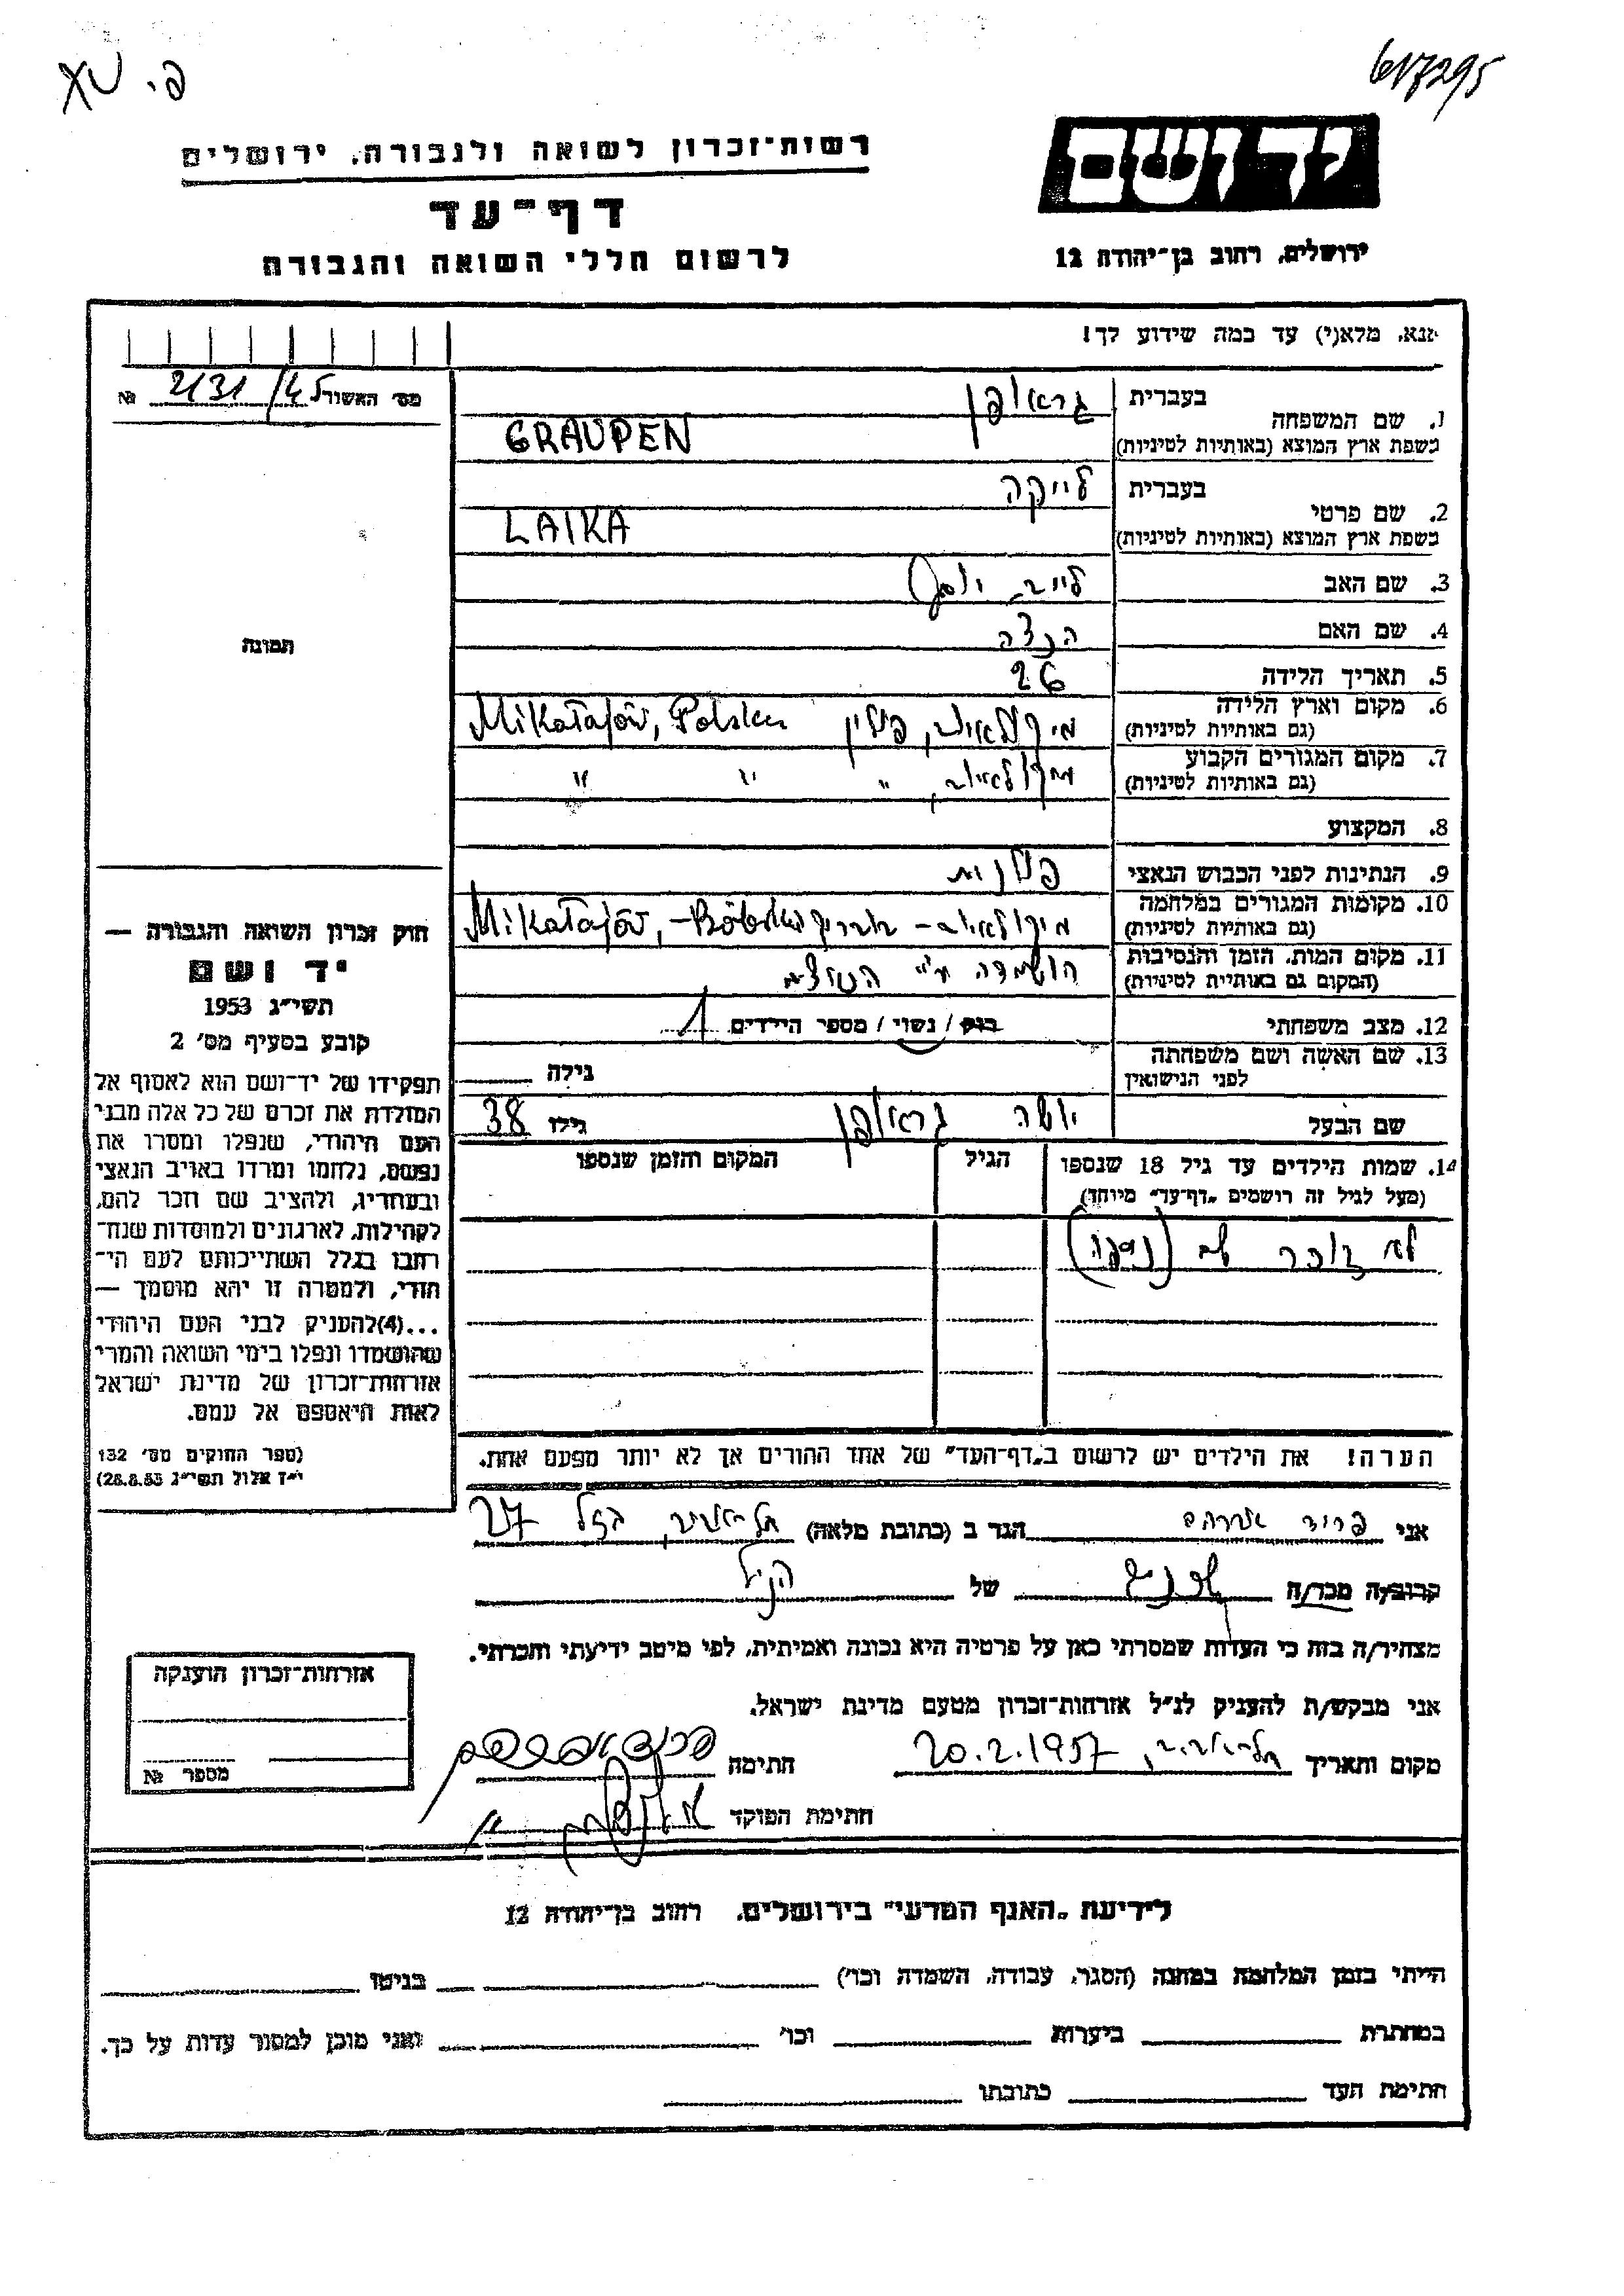 617295
פ.
יד ושם
רשות־זכרון לשואה ולגבורה, ירושלים
דף־עד
ירושלים, רחוב בן־יהודה 12
לרשום חללי השואה והגבורה
אנא, מלא(י) עד כמה שידוע לך!
מס' האשור 2131/45 №
1. שם המשפחה
בעברית גראופן
בשפת ארץ המוצא (באותיות לטיניות) GRAUPEN
2. שם פרטי
בעברית לייקה
בשפת ארץ המוצא (באותיות לטיניות) LAIKA
3. שם האב לייב יוסף
4. שם האם הנצה
תמונה
5. תאריך הלידה 26
6. מקום וארץ הלידה מיקולאיוב, פולין Mikołajów, Polska
(גם באותיות לטיניות)
7. מקום המגורים הקבוע מיקולאיוב, " " "
(גם באותיות לטיניות)
8. המקצוע
9. הנתינות לפני הכבוש הנאצי פולנית
10. מקומות המגורים במלחמה מיקולאיוב - Mikołajów, -Bóbrka
(גם באותיות לטיניות)
11. מקום המות, הזמן והנסיבות הושמדה ע"י הנאצים
(המקום גם באותיות לטיניות)
12. מצב משפחתי רווק / נשוי / מספר הילדים 1
13. שם האשה ושם משפחתה
לפני הנישואין גילה
שם הבעל גראופן גילו 38
14. שמות הילדים עד גיל 18 שנספו הגיל המקום והזמן שנספו
(מעל לגיל זה רושמים "דף־עד" מיוחד)
לא זוכר שם
הערה! את הילדים יש לרשום ב"דף־העד" של אחד ההורים אך לא יותר מפעם אחת.
חוק זכרון השואה והגבורה —
יד ושם
תשי"ג 1953
קובע בסעיף מס' 2
תפקידו של יד־ושם הוא לאסוף אל
המולדת את זכרם של כל אלה מבני
העם היהודי, שנפלו ומסרו את
נפשם, נלחמו ומרדו באויב הנאצי
ובעוזריו, ולהציב שם וזכר להם,
לקהילות, לארגונים ולמוסדות שנח־
רבו בגלל השתייכותם לעם הי־
הודי, ולמטרה זו יהא מוסמך —
...(4)להעניק לבני העם היהודי
שהושמדו ונפלו בימי השואה והמרי
אזרחות־זכרון של מדינת ישראל
לאות היאספם אל עמם.
(ספר החוקים מס' 132
י"ז אלול תשי"ג 28.8.53)
אני פרויד אברהם הגר ב (כתובת מלאה) תל־אביב, 27
קרוב/ה מכר/ה שכנים של הנ"ל
מצהיר/ה בזה כי העדות שמסרתי כאן על פרטיה היא נכונה ואמיתית, לפי מיטב ידיעתי והכרתי.
אני מבקש/ת להעניק לנ"ל אזרחות־זכרון מטעם מדינת ישראל.
מקום ותאריך תל־אביב, 20.2.1957 חתימה פרויד אברהם
חתימת הפוקד
אזרחות־זכרון הוענקה
מספר №
לידיעת "האגף המדעי" בירושלים, רחוב בן־יהודה 12
הייתי בזמן המלחמה במחנה (הסגר, עבודה, השמדה וכו') בגיטו
במחתרת ביערות וכו' ואני מוכן למסור עדות על כך.
חתימת העד כתובתו